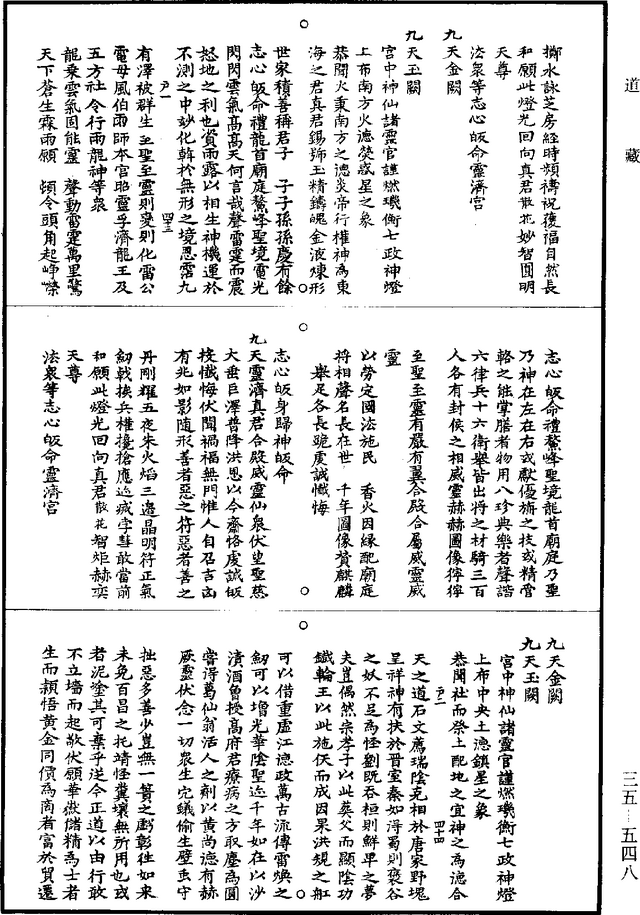 道藏
擲水詠芝房經時頻禱祝復福自然長
和願此燈光回向真君散花妙智圓明
天尊
法衆等志心皈命靈濟宮
九天金闕
九天玉闕
宮中神仙諸靈官謹燃璣衡七政神燈
上布南方火德熒惑星之象
恭聞火秉南方之德炎帝行權神為東
海之君真君錫號玉精鑄魄金液煉形
世家積善稱君子　子子孫孫慶有餘
志心皈命禮龍首廟庭鰲峰聖境電光
閃閃雲氣高高天何言哉聲雷霆而震
怒地之利也資雨露以相生神機運於
不測之中妙化斡於無形之境恩霑九
有澤被群生至聖至靈則變則化雷公
電母風伯雨師本宮昭靈孚濟龍王及
五方社令行雨龍神等衆
龍乘雲氣固能靈　聲動雷霆萬里驚
天下蒼生霖雨願　頓令頭角起崢嶸
志心皈命禮鰲峰聖境龍首廟庭乃聖
乃神在左在右或獻優旃之技或精當
輅之能掌膳者物用八珍典樂者聲諧
六律兵十六衛舉皆出將之材騎三百
人各有封侯之相威靈赫赫圖像獰獰
至聖至靈有嚴有翼合殿合屬威靈威
靈
以勞定國法施民　香火因緣配廟庭
將相聲名長在世　千年圖像贊麒麟
舉足各長跪虔誠懺悔
志心皈身歸神皈命
九天靈濟真君合殿威靈仙衆伏望聖慈
大垂巨澤普降洪恩以今齋恪虔誠皈
投懺悔伏聞禍福無門惟人自召吉凶
有兆如影隨形善者惡之符惡者善之
丹剛耀五夜朱火焰三邉晶明符正氣
劒戟挨兵權攙搶應远戚孛彗敢當前
和願此燈光回向真君散花智炬赫奕
天尊
法衆等志心皈命靈濟宮
九天金闕
九天玉闕
宮中神仙諸靈官謹燃璣衡七政神燈
上布中央土德鎮星之象
恭聞社而祭土配地之宜神之為德合
天之道石文薦瑞陰克相於唐家野塊
呈祥神有扶於晉室秦如得蜀則褒谷
之妖不足為怪劉既吞桓則鮮卑之夢
夫豈偶然宗孝子以此葬父而顯陰功
鐵輪王以此施伕而成因果洪規之舡
可以借重盧江德政萬古流傳雷煥之
劒可以增光華陰聖迹千年如在以沙
漬酒魯授高府君療病之方取塵為圓
嘗得葛仙翁活人之劑以黃尚德有赫
厥靈伏念一切衆生宂蟻偷生壁虱守
拙惡多善少豈無一簣之虧彰徃如來
未免百昌之托墙怪糞壤無所用也或
者泥塗其可棄乎逆令正道以由行敢
不立墻而起敬伏願華嶽儲精為士者
生而穎悟黃金同價為商者富於貿遷
卢一　四十三
卢二　四十四
三五－五四八